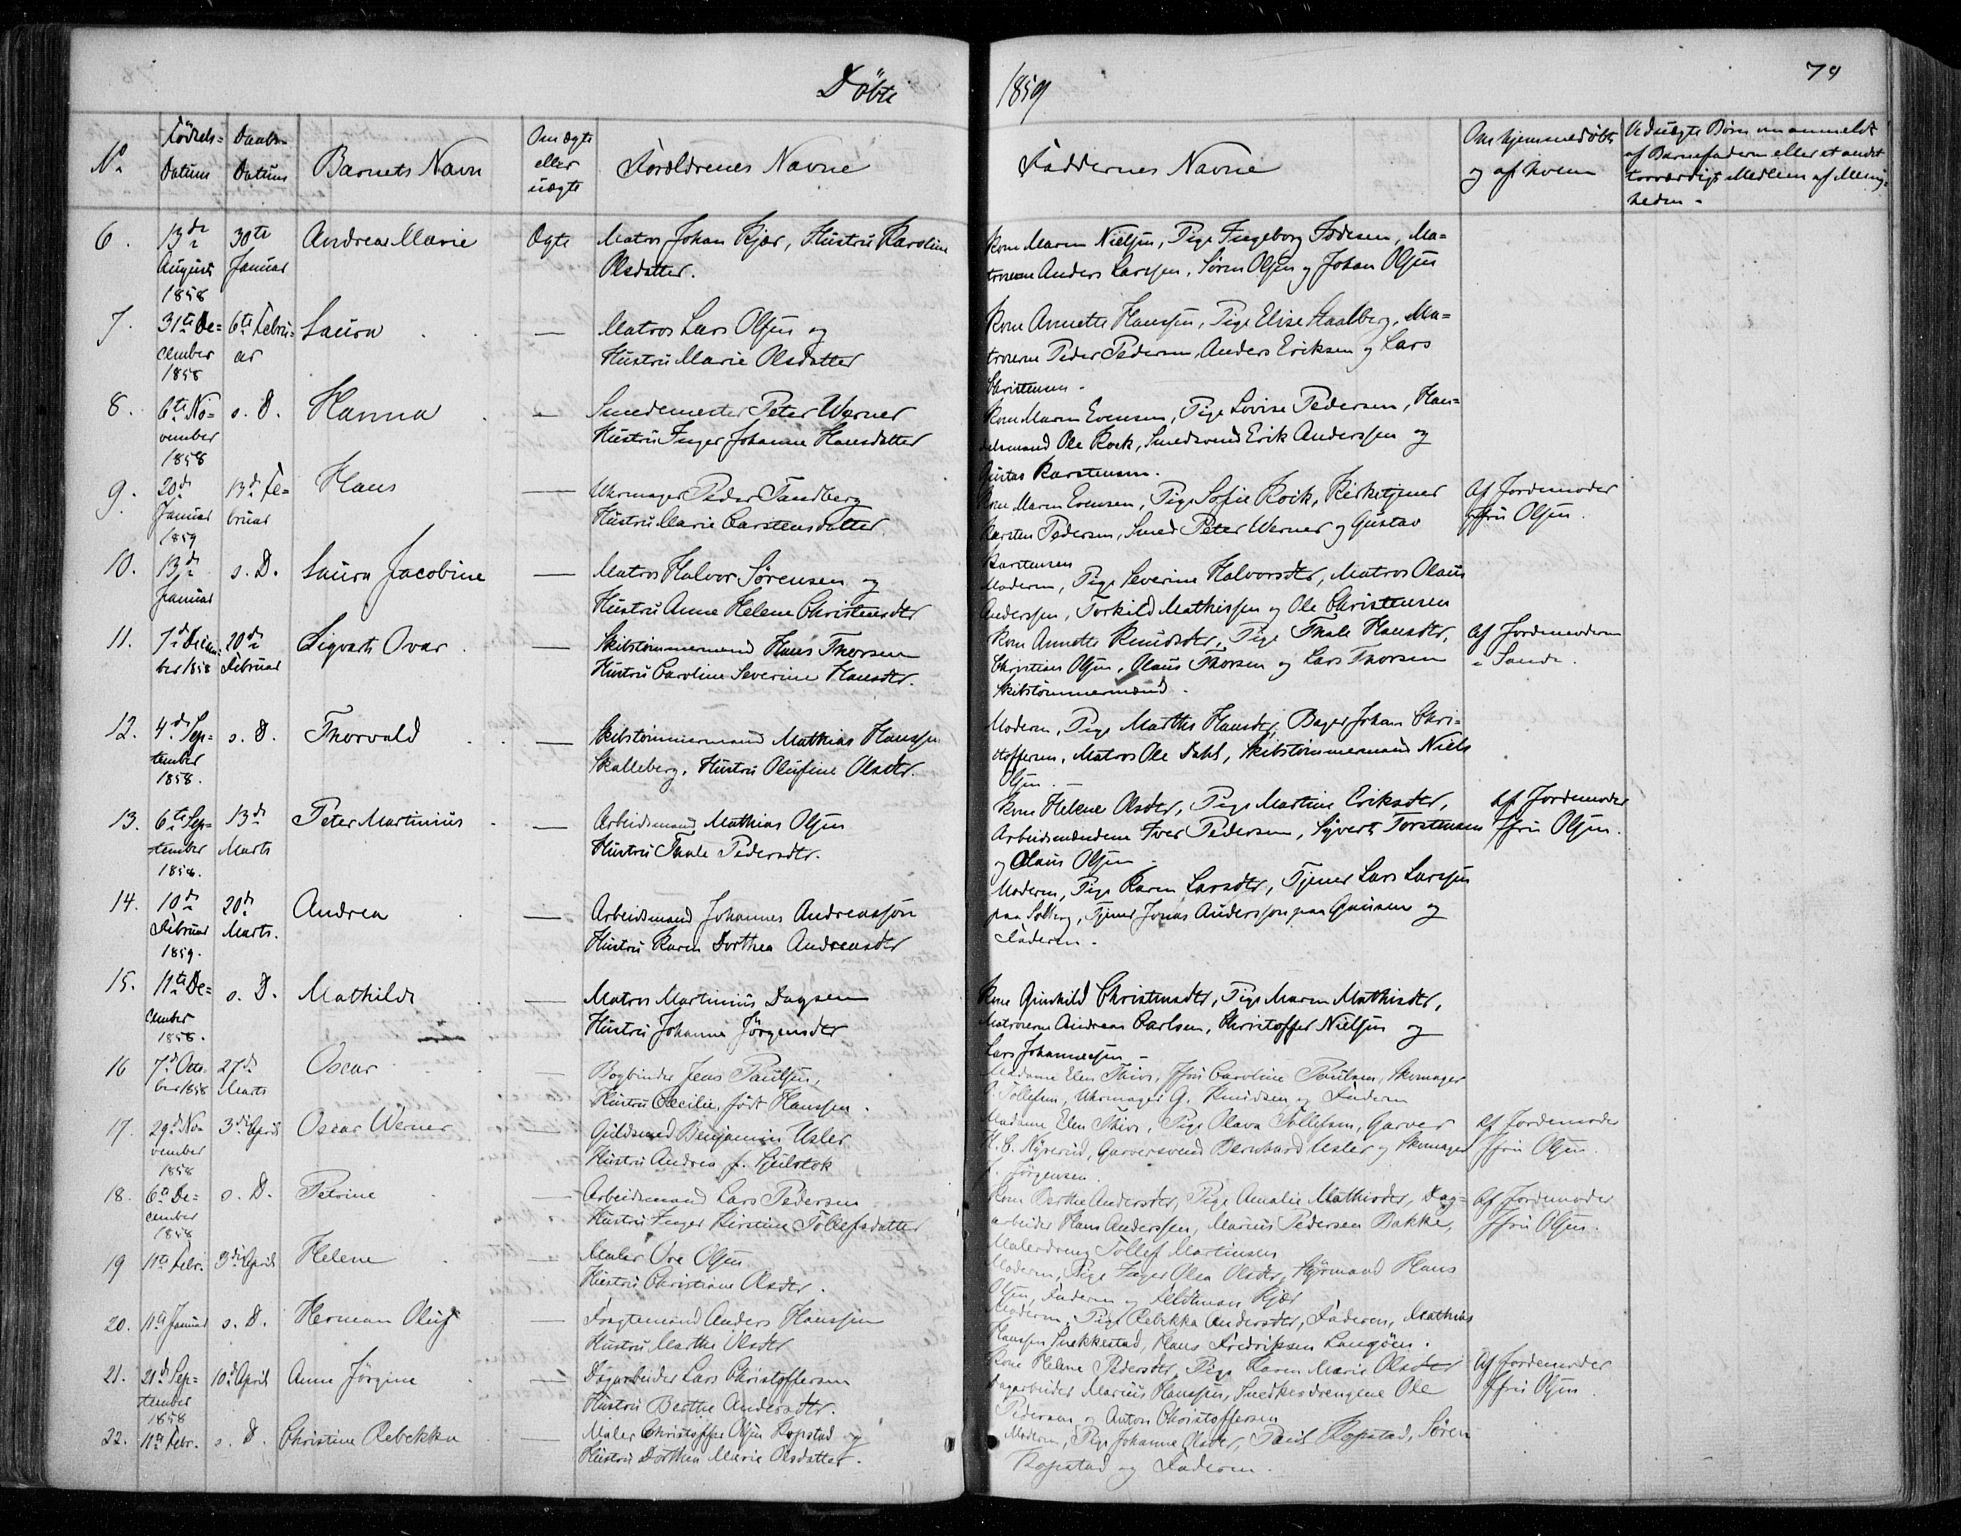 Döbte 1859 79
No. Födsels-Datum Daabs-Datum Barnets Navn Om ægte eller uægte Forældrenes Navne Faddernes Navne Om hjemmedöbt og af hvem Ved uægte Børn om anmeldt af Barnefaderen eller et andet troværdigt Medlem af Menigheden -
6. 13de August 1858 30te Januar Andrea Marie Ægte Matros Johan Kjær, Hustru Karoline
Olsdatter.
Kone Maren Nielsen, Pige Ingeborg, Ma=
troserne Anders Larssen, Søren Olsen og Johan Olsen
7. 31te December 1858 6te Februar Laura — Matros Lars Olsen og
Hustru Marie Olsdatter
Kone Annette Hanssen, Pige Elise Staalberg, Ma=
troserne Peder Pedersen, Anders Eriksen og Lars
Christensen -
8. 6te November 1858 s. D. Hanna — Smedemester Peter Werner
Hustru Inger Johanne Hansdatter
Kone Maren Evensen, Pige Lovise Pedersen, Han=
delsmand Ole Rock, Smedsvend Erik Anderssen og
Gustav Karstensen.
9. 20de Januar 1859 13de Februar Hans — Uhrmager Peder Sandberg
Hustru Marie Carstensdatter
Kone Maren Evensen, Pige Sofie Rock, Kirketjener
Karsten Pedersen, Smed Peter Werner og Gustav
Karstensen
Af Jordemoder
Jfru Olsen.
10. 13de Januar s. D. Laura Jacobine — Matros Halvor Sørensen og
Hustru Anne Helene Christensdtr
Moderen, Pige Severine Halvorsdtr, Matros Olaus
Anderssen, Torkild Mathissen og Ole Christensen
11. 7de December 1858 20de Februar Sigvart Ovar — Skibstømmermand Hans Thorsen
Hustru Caroline Severine Hansdtr.
Kone Annette Knudsdtr, Pige Thale Hansdtr,
Christian Olsen, Olaus Thorsen og Lars Thorsen
Skibstömmermænd.
Af Jordemoderen
i Sande.
12. 4de September 1858. s. D. Thorvald — Skibstømmermand Mathias Hanssen
Skalleberg, Hustru Olufine Olsdtr.
Moderen, Pige Marthe Hansdtr, Bager Johan Chri=
stoffersen, Matros Ole Dahl, Skibstömmermand Niels
Olsen. —
13. 6te September 1858. 13de Marts Peter Martinius — Arbeidsmand Mathias Olsen
Hustru Thale Pedersdtr.
Kone Helene Olsdtr, Pige Martine Eriksdtr,
Arbeidsmændene Iver Pedersen, Syvert Torstensen
og Olaus Olsen -
Af Jordemoder
Jfru Olsen.
14. 10de Februar 1859. 20de Marts. Andrea — Arbeidsmand Johannes Andreassen
Hustru Karen Dorthea Andreasdtr
Moderen, Pige Karen Larsdtr, Tjener Lars Larssen
paa Solberg, Tjener Jonas Anderssen paa og
Faderen -
15. 11te December 1858. s. D. Mathilde — Matros Martinius Dagsen
Hustru Johanne Jörgensdtr
Kone Gunhild Christensdtr, Pige Maren Mathisdtr,
Matroserne Andreas Carlsen, Christoffer Nielsen og
Lars Johannessen -
16 7de October 1858 27de Marts Oscar — Bogbinder Jens Paulsen,
Hustru Cecilie, född Hanssen.
Madame Elen Thiis, Jfru Caroline Paulsen, Skomager
Tollefsen, Uhrmager G. Knudsen og Faderen
17. 29de November 1858 3die April Oscar Werner — Guldsmed Benjamin Usler
Hustru Andrea f. Gjeilstok
Madame Elen Thiis, Pige Olava Tollefsen, Garver
H. C. Nyrerud, Garversvend Bernhard Usler og Skomager
Jörgensen.
Af Jordemoder
Jfru Olsen.
18. 6te December 1858 s. D. Petrine — Arbeidsmand Lars Pedersen
Hustru Inger Kirstine Tollefsdatter
Kone Berthe Andersdtr, Pige Amalie Mathisdtr, Dag=
arbeider Hans Anderssen, Marius Pedersen Bakke,
Malerdreng Tollef Martinsen
Af Jordemoder
Jfru Olsen.
19 11te Febr. 3die April Helene — Maler Ove Olsen
Hustru Christiane Olsdtr.
Moderen, Pige Inger Olea Olsdtr, Styrmand Hans
Olsen, Faderen og Kjær
20. 11te Januar s. D. Herman Oluf — Fragtemand Anders Hanssen
Hustru Marthe Olsdtr
Moderen, Pige Rebekka Andersdtr, Faderen, Mathias
Hanssen Snekkestad, Hans Fredriksen Langöen.
21. 21de September 1858 10de April Anne Jörgine — Dagarbeider Lars Christoffersen
Hustru Berthe Andersdtr.
Kone Helene Pedersdtr, Pige Karen Marie Olsdtr
Dagarbeider Marius Hanssen, Snedkerdrengene Ole
Pedersen og Anton Christoffersen
Af Jordemoder
Jfru Olsen.
22. 11te Febr. s. D. Christine Rebekka — Maler Christoffer Olsen Kopstad og
Hustru Dorthea Marie Olsdatter.
Moderen, Pige Johanne Olsdtr, Paul Kopstad, Sören
Kopstad og Faderen.